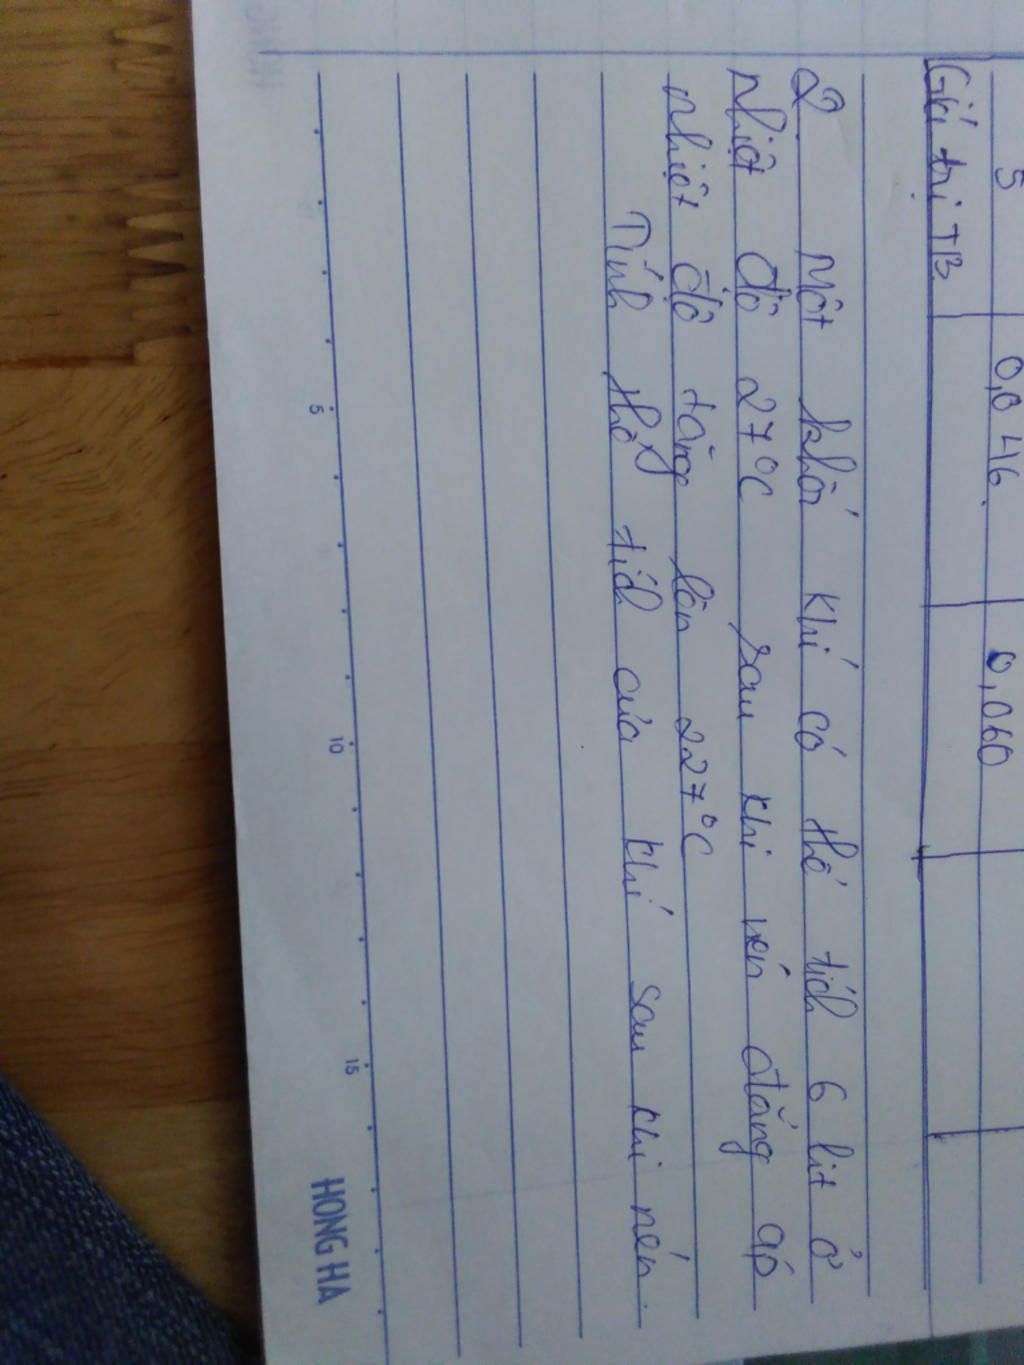 5 0,046 0,060
Giá trị TB
2. Một khối khí có thể tích 6 lit ở
Nhiệt độ 27°C sau khi nén đẳng áp
nhiệt độ tăng lên 227°C
Tính thể tích của khí sau khi nén.
5 10 15
HONG HA